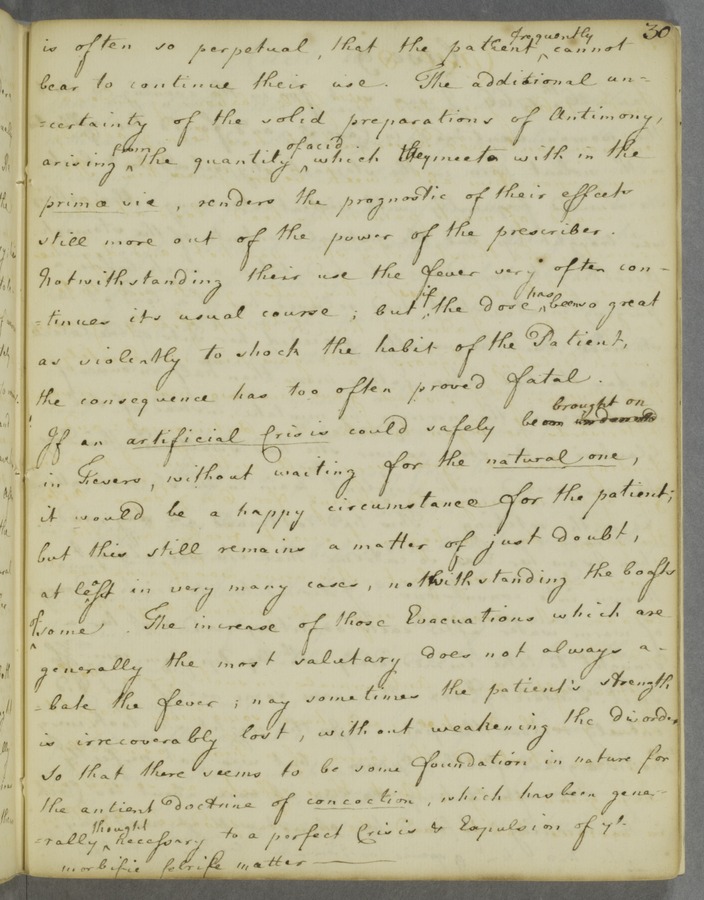 30
is often so perpetual, that the patient frequently cannot
bear to continue their use. The additional un=
=certainty of the solid preparations of Antimony,
arising from the quantity of acid which they meet with in the
primæ viæ, renders the prognostic of their effects
still more out of the power of the prescriber.
Notwithstanding their use the fever very often con-
=tinues its usual course; but if the dose has been so great
as violently to shock the habit of the Patient,
the consequence has too often proved fatal.
If an artificial Crisis could safely be brought on
in Fevers, without waiting for the natural one,
it would be a happy circumstance for the patient;
but this still remains a matter of just doubt,
at least in very many cases, notwithstanding the boasts
of some. The increase of those Evacuations which are
generally the most salutary does not always a-
-bate the fever; nay sometimes the patient's strength
is irrecoverably lost, without weakening the disorder
so that there seems to be some foundation in nature for
the antient Doctrine of concoction, which has been gene-
-rally thought necessary to a perfect Crisis & Expulsion of yt
morbific febrile matter